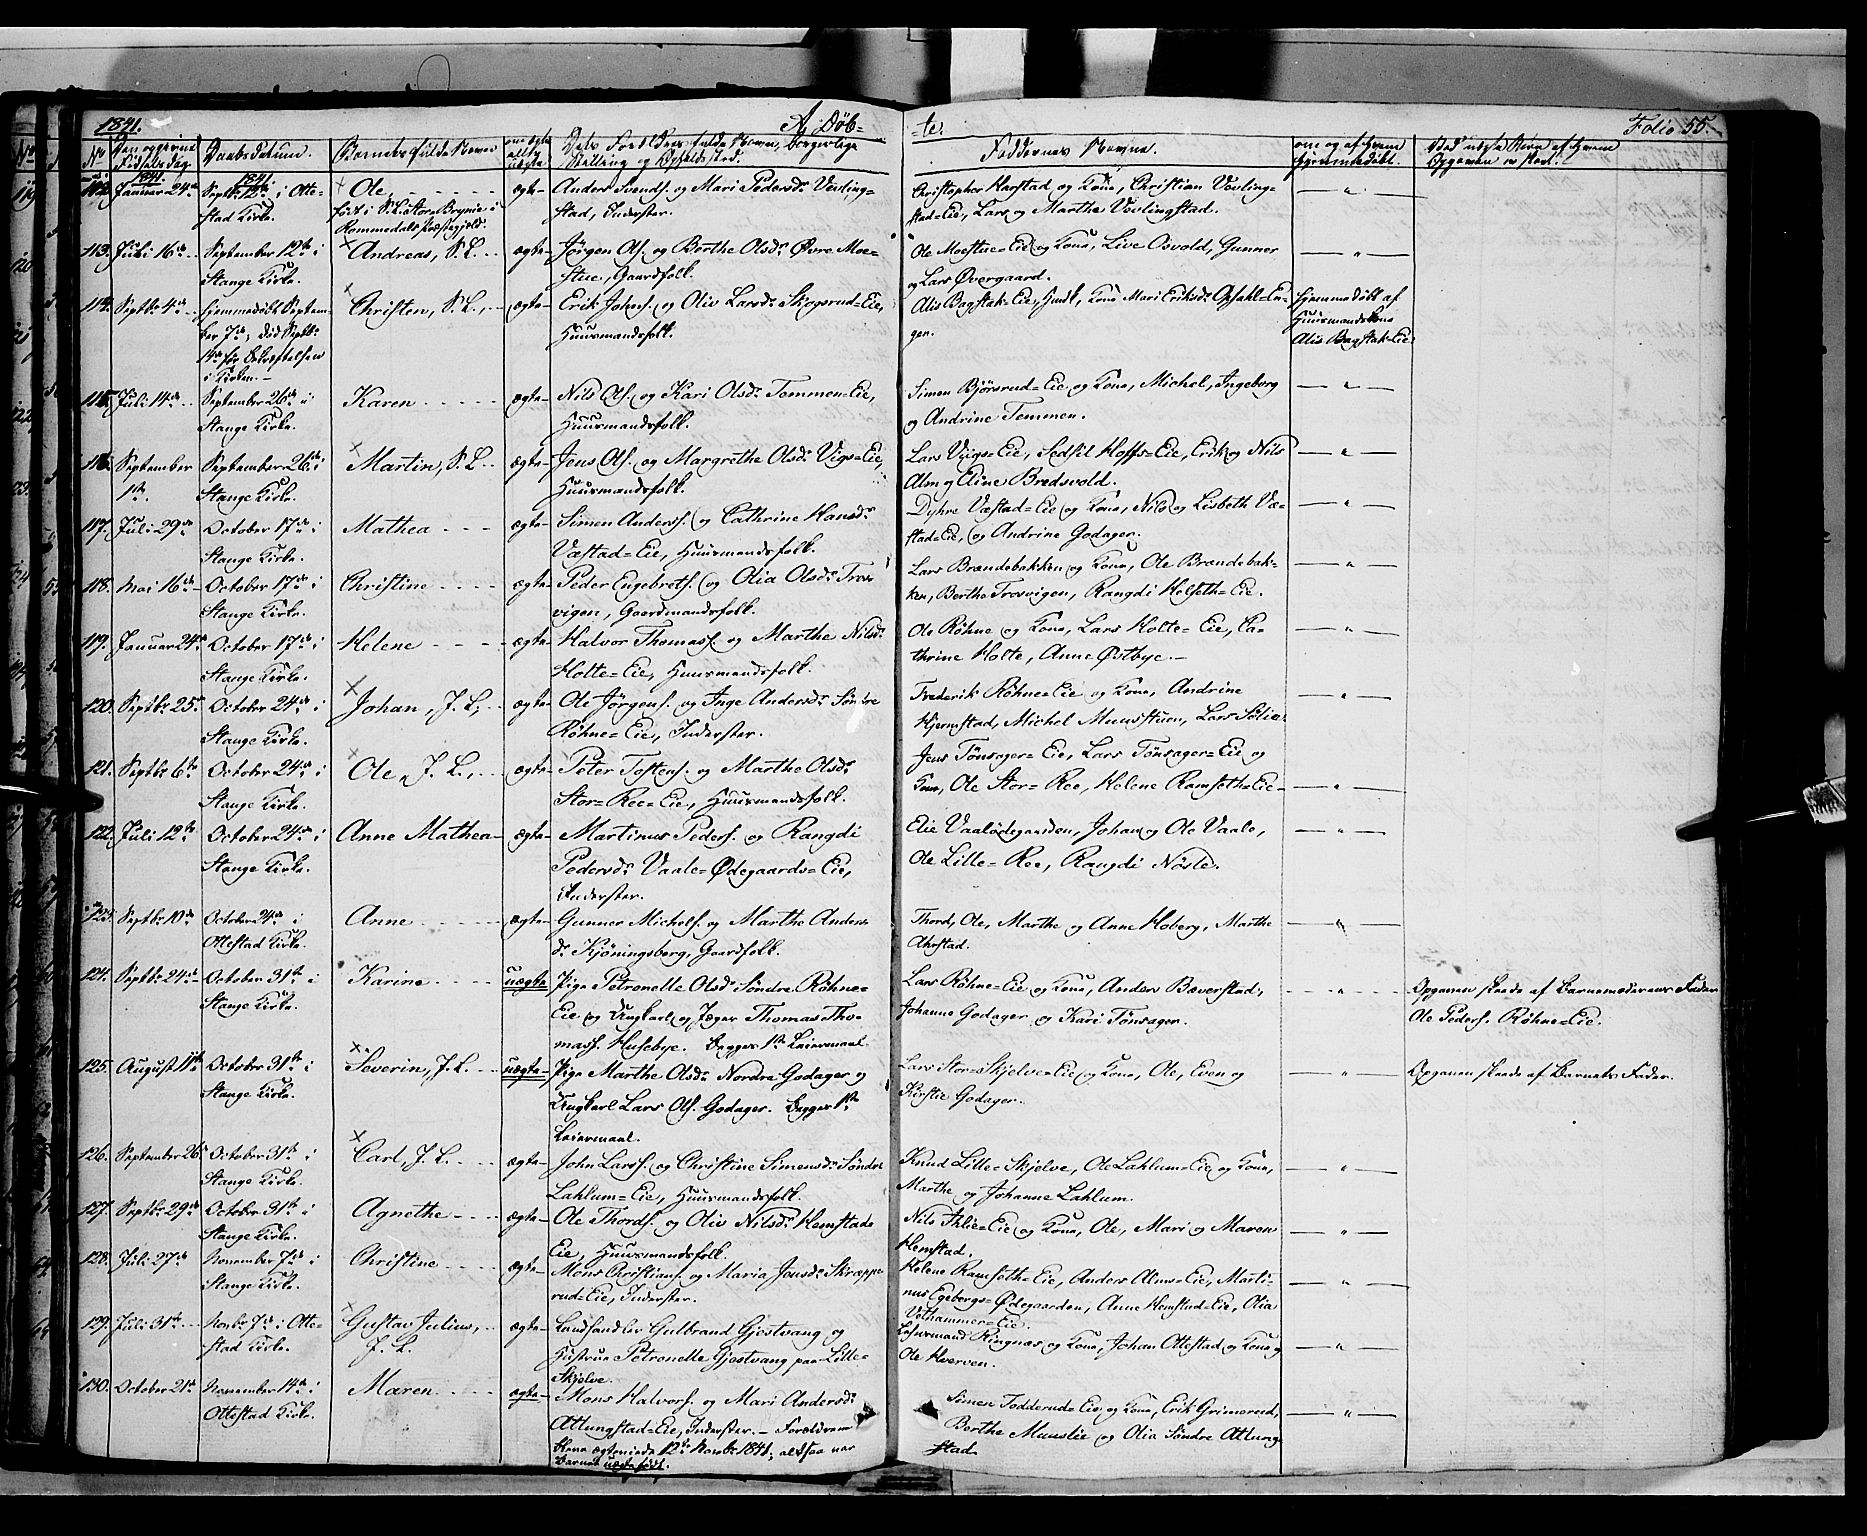 1841. A. Döb=
=te. Folio 55.
No
Den opgivne Födselsdag.
Daabsdatum.
Barnets fulde Navn
om ægte eller uægte
Dets Forældres fulde Navn, borgerlige Stilling og Opholdssted.
Faddernes Navne.
om og af hvem hjemmedöbt.
1841.
1841.
112. Januar 24de
Septbr 12te i Otte-
stad Kirke.
Ole,
født i S. L. Store Brynie i
Rommedals Præstegjeld.
ægte
Anders Svends. og Mari Pedersdr Vovling-
stad, Inderster.
Christopher Harstad og Kone, Christian Vovling-
stad=Eie, Lars og Marthe Vovlingstad.
113. Juli 16de
September 12te i
Stange Kirke.
Andreas, S. L.
ægte
Jørgen Ols. og Berthe Olsdr Øvre Moe-
stue, Gaardfolk.
Ole Moestue=Eie og Kone, Live Osvold, Gunner
og Lars Overgaard.
114. Septbr 4de
Hjemmedöbt Septem-
ber 7de, død Septbr
14de før Bekræftelsen
i Kirken.
Christen, S. L.,
ægte
Erik Johns. og Oliv Larsdr Skogsrud=Eie,
Huusmandsfolk.
Alis Bagstak=Eie, hendes Kone Mari Eriksdr Opsahl=En-
gen.
Hjemmedöbt af
Huusmandskone
Alis Bagstak=Eie.
115. Juli 14de
September 26de i
Stange Kirke.
Karen
ægte
Nils Ols. og Kari Olsdr Tommen=Eie,
Huusmandsfolk.
Simen Bjørsrud=Eie og Kone, Michel, Ingeborg
og Andrine Tommen.
116. September
1ste.
September 26de i
Stange Kirke.
Martin, S. L.
ægte
Jens Ols. og Margrethe Olsdr Vigs=Eie,
Huusmandsfolk.
Lars Viigs=Eie, Sedsel Hoffs=Eie, Erik og Nils
Alm og Eline Bredsvold.
117. Juli 29de
October 17de i
Stange Kirke.
Mathea
ægte
Simen Anders. og Cathrine Hansdr
Væstad=Eie, Huusmandsfolk.
Dyhre Væstad=Eie og Kone, Nils og Lisbeth Væ-
stad=Eie, og Andrine Godager.
118. Mai 16de
October 17de i
Stange Kirke.
Christine
ægte
Peder Engebrets. og Olia Olsdr Tros-
vigen, Gaardmandsfolk.
Lars Brændebakken og Kone, Ole Brændebak-
ken, Berthe Trosvigen, Rangdi Holseth=Eie.
119. Januar 24de
October 17de i
Stange Kirke.
Helene
ægte
Halvor Thomas. og Marthe Nilsdr
Holte=Eie, Huusmandsfolk.
Ole Röhne og Kone, Lars Holte=Eie, Ca-
thrine Holte, Anne Østbye.
120. Septbr 25de
October 24de i
Stange Kirke.
Johan, J. L.,
ægte
Ole Jørgens. og Inge Andersdr Søndre
Röhne=Eie, Inderster.
Frederik Röhne=Eie og Kone, Andrine
Hjermstad, Michel Muusstuen, Lars Sölie.
121. Septbr 6te
October 24de i
Stange Kirke.
Ole, J. L.,
ægte
Peter Tostens. og Marthe Olsdr
Stor=Ree=Eie, Huusmandsfolk.
Jens Tönsager=Eie, Lars Tönsager=Eie og
Kone, Ole Stor=Ree, Helene Ramseth=Eie
122. Juli 12te
October 24de i
Stange Kirke.
Anne Mathea
ægte
Martinus Peders. og Rangdi
Pedersdr Vaale=Ødegaards=Eie,
Inderster.
Elie Vaalödegaarden, Johan og Ole Vaale,
Ole Lille=Ree, Rangdi Nösle.
123. Septbr 10de
October 24de i
Ottestad Kirke.
Anne
ægte
Gunner Michels. og Marthe Anders
dr Kjöningsberg, Gaardfolk.
Thord, Ole, Marthe og Anne Hoberg, Marthe
Ahrstad.
124. Septbr 24de
October 31te i
Stange Kirke.
Karine
uægte
Pige Petronelle Olsdr Søndre Röhne-
Eie og Ungkarl og Jæger Thomas Tho-
mass. Husebye. Begges 1ste Leiermaal.
Lars Röhne=Eie og Kone, Anders Bæverstad,
Johanne Godager og Kari Tönsager.
Opgaven skeede af Barnemoderens Fader
Ole Peders. Röhne=Eie.
125. August 11te
October 31te i
Stange Kirke.
Severin, J. L.
uægte
Pige Marthe Olsdr Nordre Godager og
Ungkarl Lars Ols. Godager. Begges 1ste
Leiermaal.
Lars Stor=Skjelve=Eie og Kone, Ole, Even og
Kirstie Godager.
Opgaven skeede af Barnets Fader.
126. September 26
October 31te i
Stange Kirke.
Carl, J. L.
ægte
John Larss. og Christine Simensdr Søndre
Lahlum=Eie, Huusmandsfolk.
Knud Lille=Skjelve, Ole Lahlum=Eie og Kone,
Marthe og Johanne Lahlum.
127. Septbr 29de
October 31te i
Stange Kirke.
Agnethe
ægte
Ole Thords. og Oliv Nilsdr Hemstads
Eie, Huusmandsfolk.
Nils Ihlie=Eie og Kone, Ole, Mari og Maren
Hemstad.
128. Juli 27de
November 7de i
Stange Kirke.
Christine
ægte
Mons Christians. og Maria Jensdr Skræppe
rud=Eie, Inderster.
Helene Ramseth=Eie, Anders Alms=Eie, Marti-
nus Egebergs=Ødegaarden, Anne Hemstad=Eie, Olia
Vethammer=Eie.
129. Juli 31te
Novbr 7de i Otte-
stad Kirke.
Gustav Julius,
J. L.
ægte
Landhandler Gulbrand Gjestvang og
Hustrue Petronelle Gjestvang paa Lille-
Skjelve.
Lehnsmand Ringnæs og Kone, Johan Ottestad og Kone og
Ole Hverven.
130. October 21de
November 14de i
Ottestad Kirke.
Maren
ægte
Mons Halvors. og Mari Andersdr
Atlungstad=Eie, Inderster. Forældrene
bleve ægteviede 12te Novbr 1841, altsaa var
Barnet uægte födt.
Simen Fodderud=Eie og Kone, Erik Grimerud,
Berthe Muuslie og Olia Søndre Atlung-
stad.